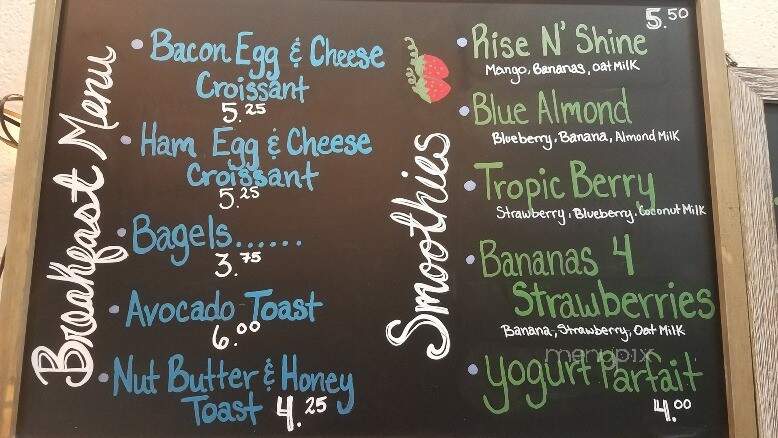 Breakfast Menu
Bacon Egg & Cheese
Croissant
5.25
Ham Egg & Cheese
Croissant
5.25
Bagels......
3.75
Avocado Toast
6.00
Nut Butter & Honey
Toast 4.25
Smoothies
5.50
Rise N' Shine
Mango, Bananas, oat Milk
Blue Almond
Blueberry, Banana, Almond Milk
Tropic Berry
Strawberry, Blueberry, Coconut Milk
Bananas 4
Strawberries
Banana, Strawberry, Oat Milk
menupix
Yogurt Parfait
4.00